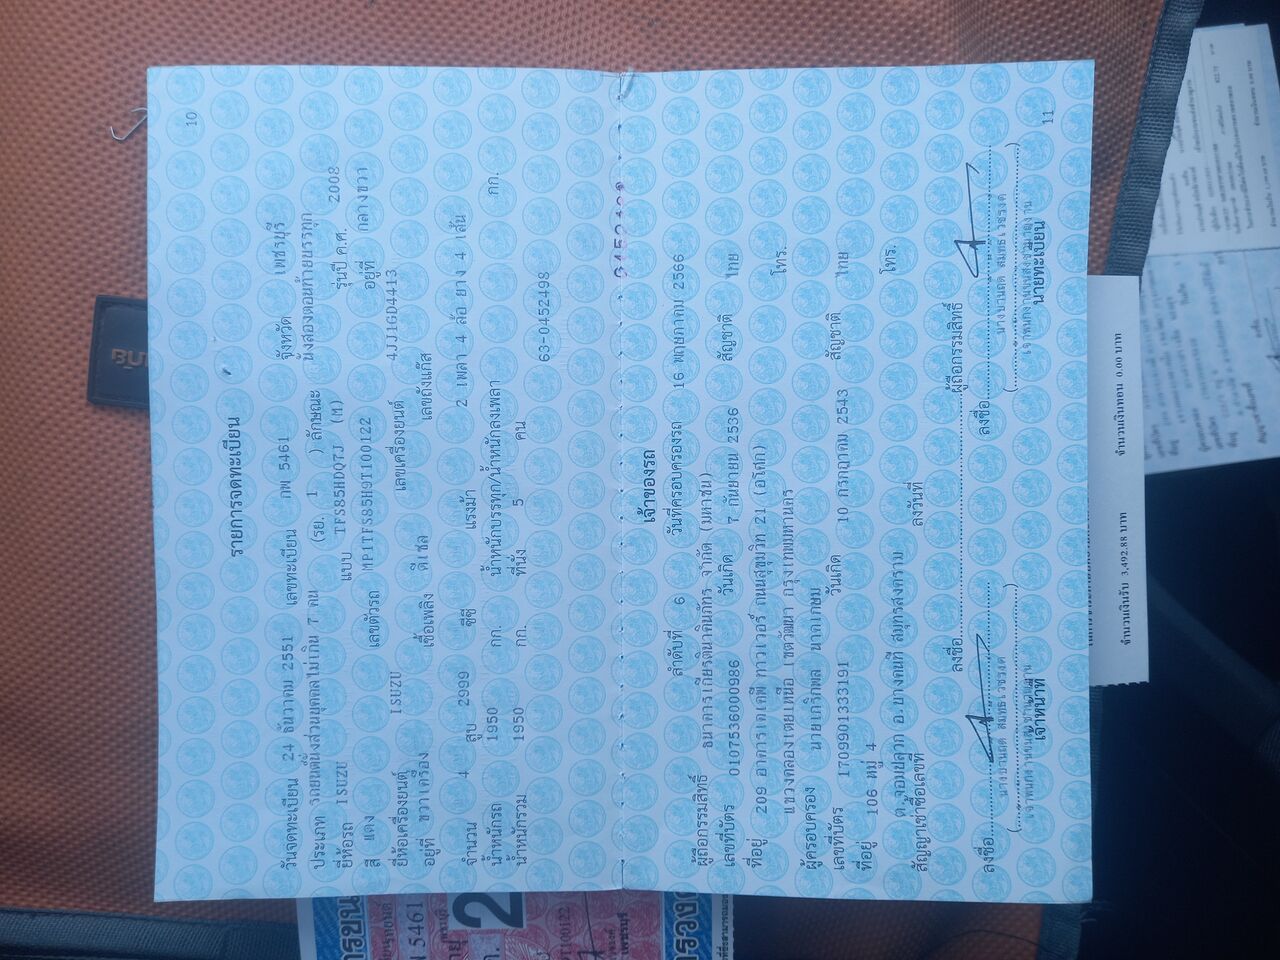 10
รายการจดทะเบียน
วันจดทะเบียน 24 ธันวาคม 2551 เลขทะเบียน กพ 5461 จังหวัด เพชรบุรี
ประเภท รถยนต์นั่งส่วนบุคคลไม่เกิน 7 คน (รย. 1 ) ลักษณะ นั่งสองตอนท้ายบรรทุก
ยี่ห้อรถ ISUZU แบบ TFS85HDQ7J (M) รุ่นปี ค.ศ. 2008
สี แดง เลขตัวรถ MP1TFS85H9T100122 อยู่ที่ กลางขวา
ยี่ห้อเครื่องยนต์ ISUZU เลขเครื่องยนต์ 4JJ1GD4413
อยู่ที่ ขวาเครื่อง เชื้อเพลิง ดีเซล เลขถังแก๊ส
จำนวน 4 สูบ 2999 ซีซี แรงม้า 2 เพลา 4 ล้อ ยาง 4 เส้น
น้ำหนักรถ 1950 กก. น้ำหนักบรรทุก/น้ำหนักลงเพลา กก.
น้ำหนักรวม 1950 กก. ที่นั่ง 5 คน
63-0452498
เจ้าของรถ
ลำดับที่ 6 วันที่ครอบครองรถ 16 พฤษภาคม 2566
ผู้ถือกรรมสิทธิ์ ธนาคารเกียรตินาคินภัทร จำกัด (มหาชน)
เลขที่บัตร 0107536000986 วันเกิด 7 กันยายน 2536 สัญชาติ ไทย
ที่อยู่ 209 อาคารเคเคพี ทาวเวอร์ ถนนสุขุมวิท 21 (อโศก)
แขวงคลองเตยเหนือ เขตวัฒนา กรุงเทพมหานคร โทร.
ผู้ครอบครอง นายเกริกพล นาคเกษม
เลขที่บัตร 1709901333191 วันเกิด 10 กรกฎาคม 2543 สัญชาติ ไทย
ที่อยู่ 106 หมู่ 4
ต.จอมปลวก อ.บางคนที สมุทรสงคราม โทร.
สัญญาเช่าซื้อเลขที่ ลงวันที่
ลงชื่อ ผู้ถือกรรมสิทธิ์
ลงชื่อ ลงชื่อ
เจ้าหน้าที่ นายทะเบียน
11
จำนวนเงินรับ 3,492.88 บาท จำนวนเงินทอน 0.00 บาท
5461
2